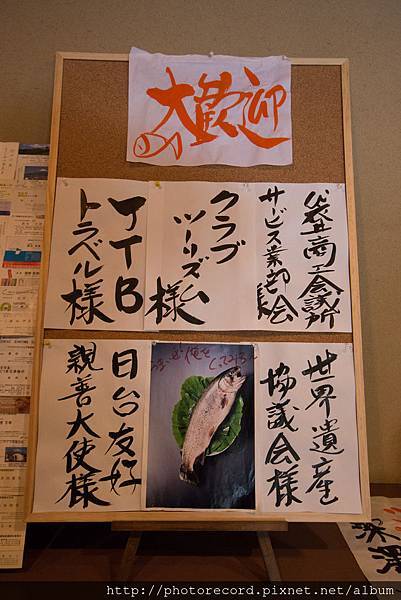 大歓迎
商工会議所
サービス業部会
様
クラブ
ツーリズム
様
JTB
トラベル様
世界遺産
協議会様
日台友好
親善大使様
http://photorecord.pixnet.net/album